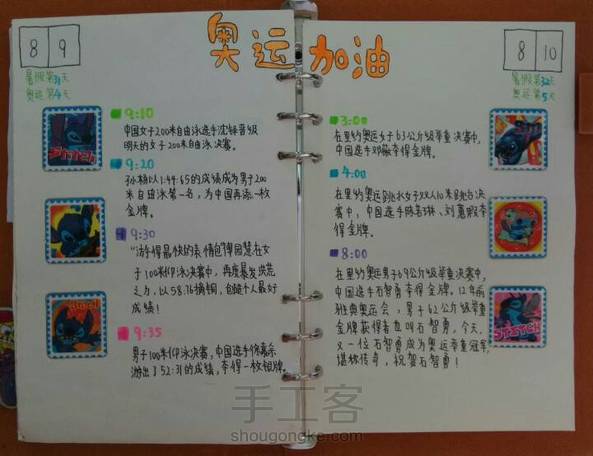 奥运加油
8 9
暑假第31天
奥运第4天
9:10
中国女子200米自由泳选手沈铎晋级
明天的女子200米自由泳决赛。
9:20
孙杨以1:44:65的成绩成为男子200
米自由泳第一名，为中国再添一枚
金牌。
9:30
"游得最快的表情包"傅园慧在女
子100米仰泳决赛中，再度暴发洪荒
之力，以58.76摘铜，创造个人最好
成绩！
9:35
男子100米仰泳决赛，中国选手徐嘉余
游出了52:31的成绩，夺得一枚银牌。
Stitch
8 10
暑假第32天
奥运第5天
3:00
在里约奥运女子63公斤级举重决赛中，
中国选手邓薇夺得金牌。
4:00
在里约奥运跳水女子双人10米跳台决
赛中，中国选手陈若琳、刘蕙瑕夺
得金牌。
8:00
在里约奥运男子69公斤级举重决赛中，
中国选手石智勇夺得金牌。12年前
雅典奥运会，男子62公斤级举重
金牌获得者也叫石智勇，今天，
又一位石智勇成为奥运举重冠军，
堪称传奇，祝贺石智勇！
STITCH
手工客
shougongke.com